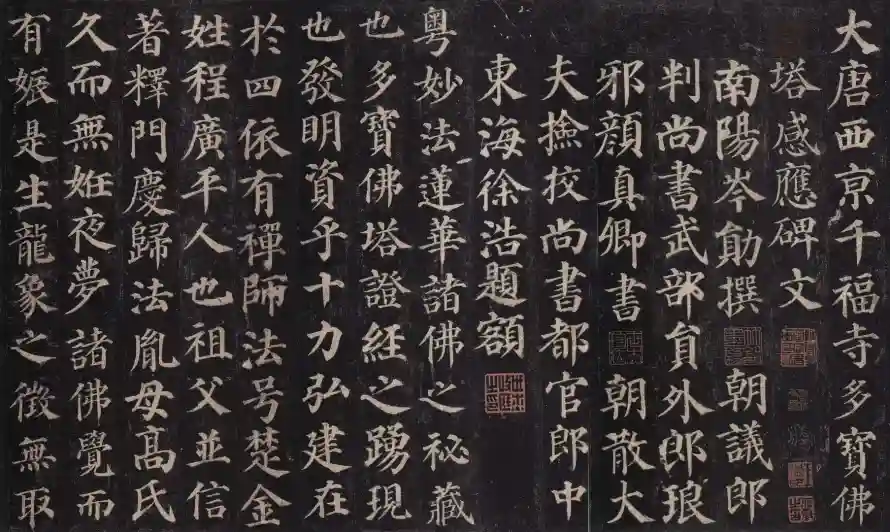 大唐西京千福寺多寶佛
塔感應碑文
南陽岑勛撰 朝議郎
判尚書武部貟外郎琅
邪顔真卿書 朝散大
夫撿挍尚書都官郎中
東海徐浩題額
粵妙法蓮華諸佛之秘藏
也多寶佛塔證經之踴現
也發明資乎十力弘建在
於四依有禪師法号楚金
姓程廣平人也祖父並信
著釋門慶歸法胤母髙氏
久而無妊夜夢諸佛覺而
有娠是生龍象之徵無取